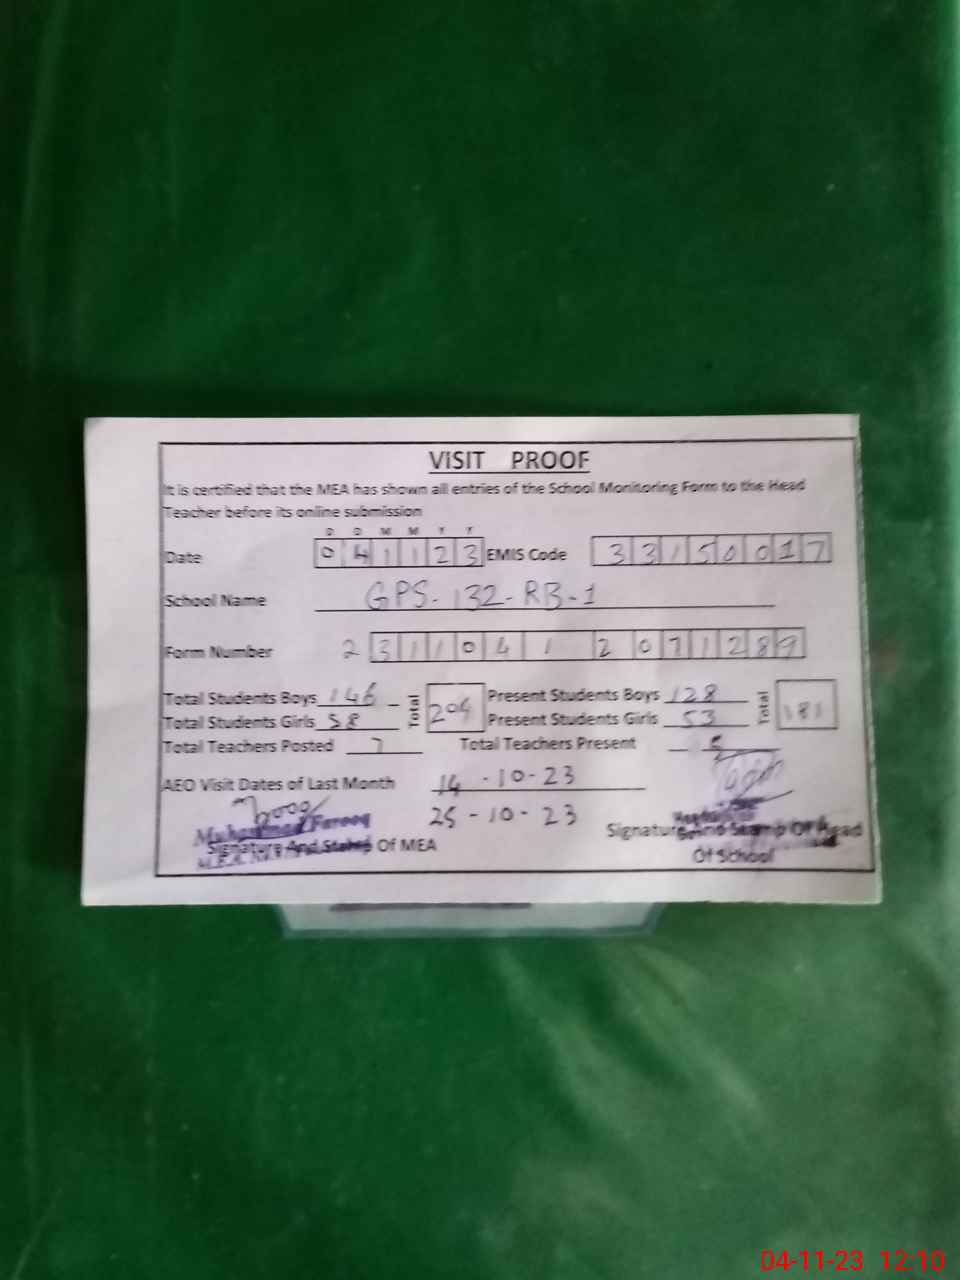 VISIT PROOF
It is certified that the MEA has shown all entries of the School Monitoring Form to the Head
Teacher before its online submission
D D M M Y Y
Date 0 4 1 1 2 3 EMIS Code 3 3 1 5 0 0 1 7
School Name GPS-132-RB-1
Form Number 2 3 1 1 0 4 1 2 0 7 1 2 8 9
Total Students Boys 146 Total 204 Present Students Boys 128 Total 181
Total Students Girls 58 Present Students Girls 53
Total Teachers Posted 7 Total Teachers Present 5
AEO Visit Dates of Last Month 14-10-23
25-10-23
Muhammad Farooq
Signature And Stamp Of MEA
Signature And Stamp Of Head
Of School
04-11-23 12:10